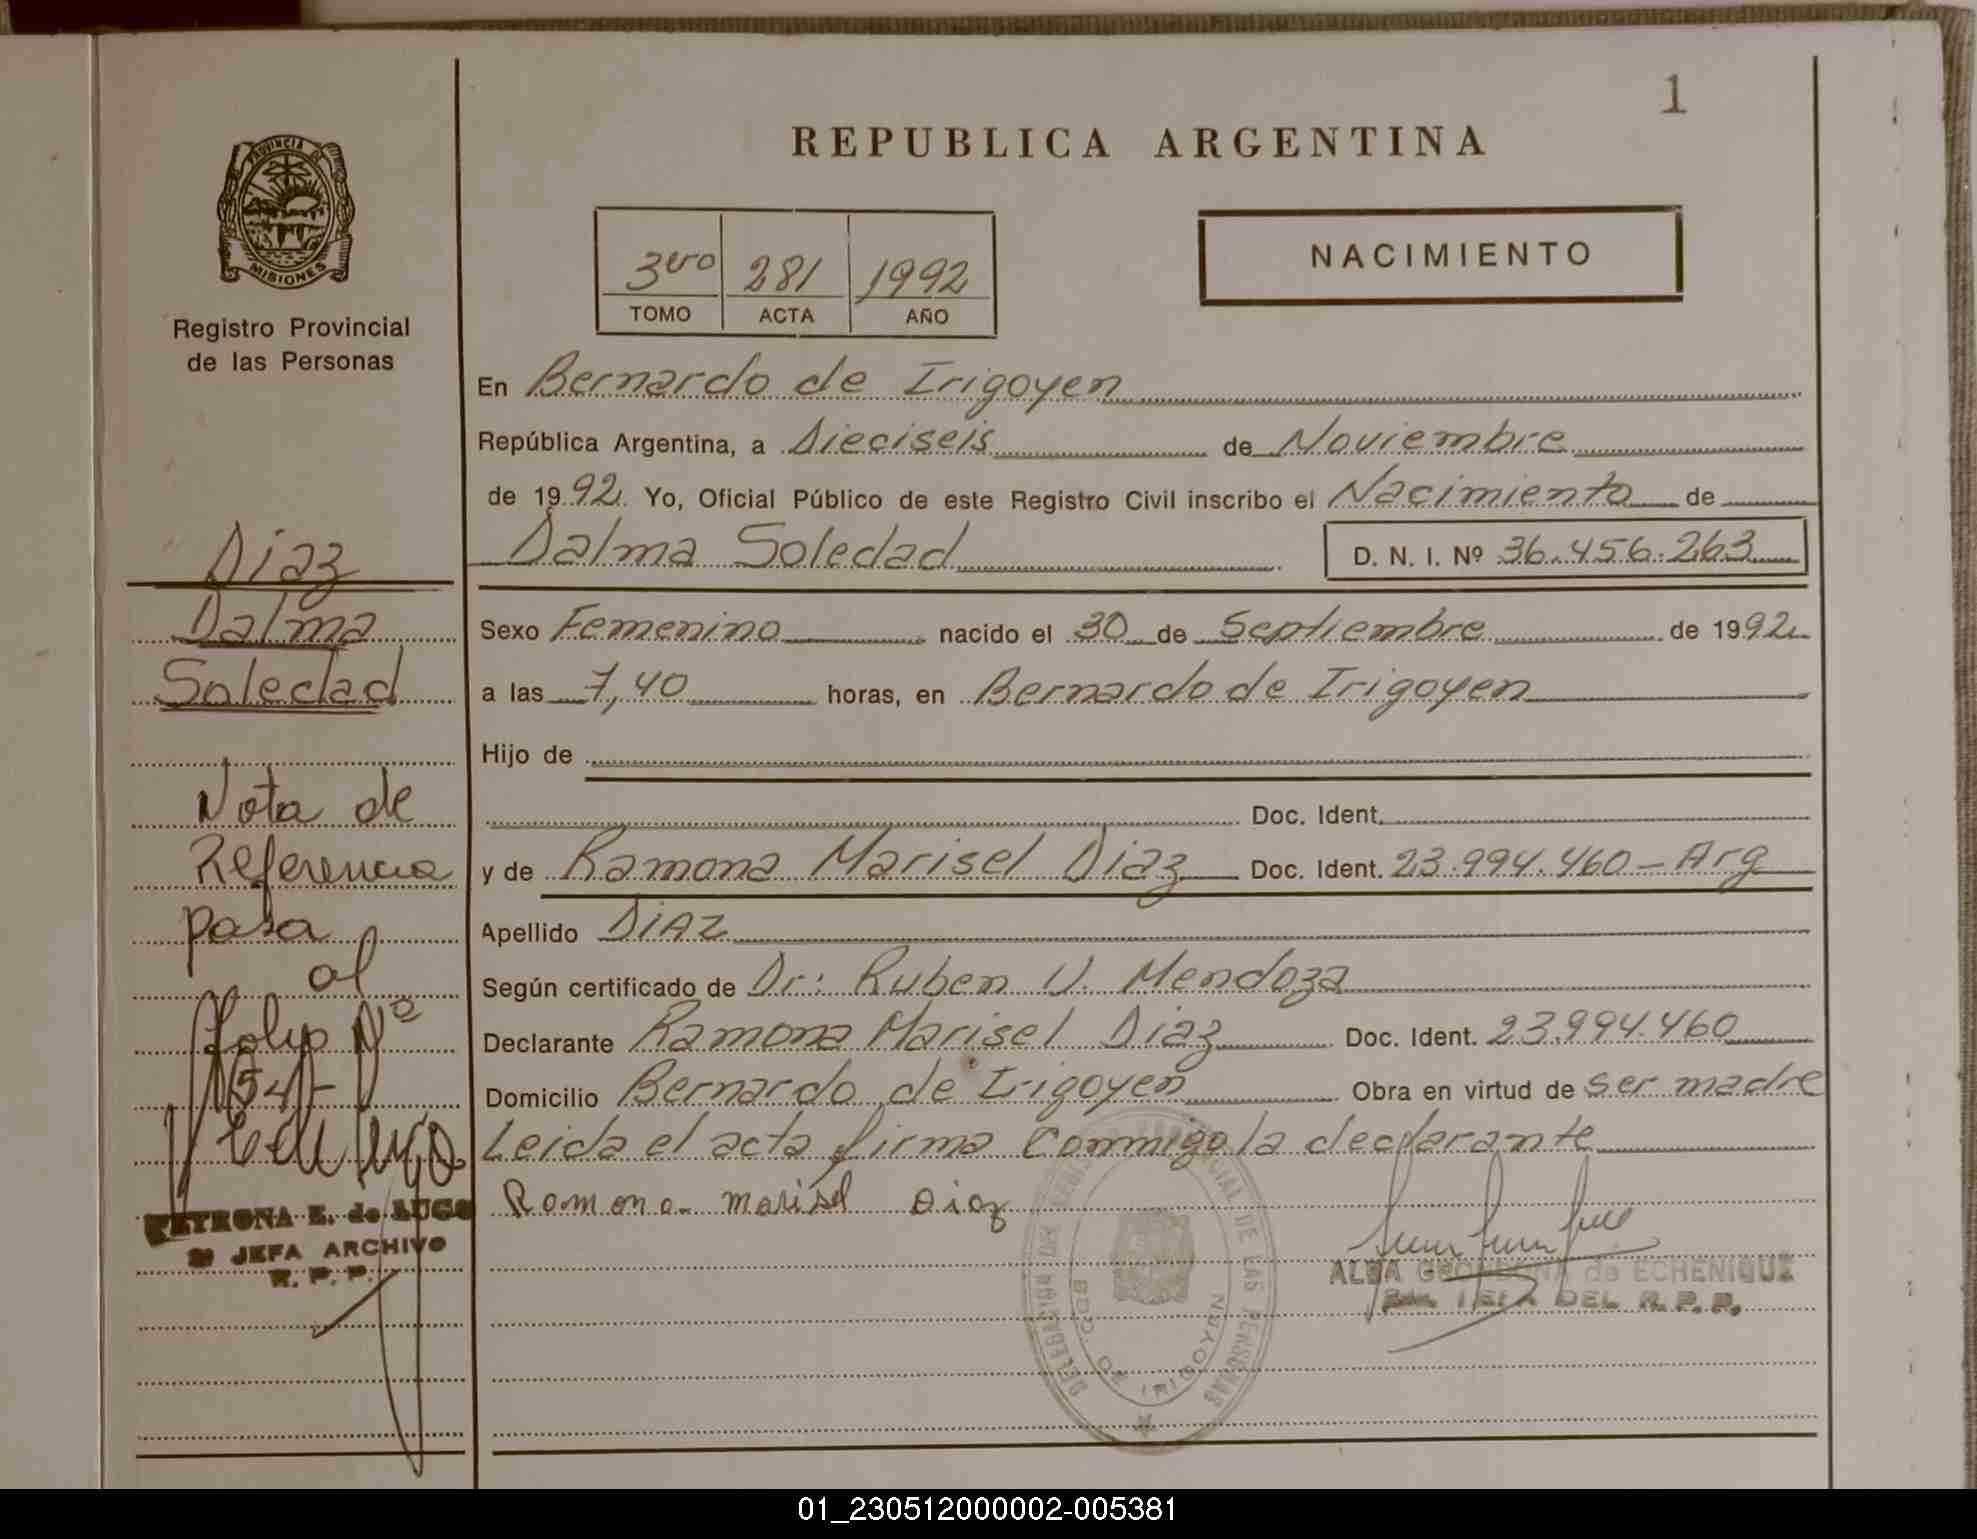 1
REPUBLICA ARGENTINA
PROVINCIA DE
MISIONES
Registro Provincial
de las Personas
3ero 281 1992
TOMO ACTA AÑO
NACIMIENTO
En Bernardo de Irigoyen
República Argentina, a Dieciseis de Noviembre
de 1992. Yo, Oficial Público de este Registro Civil inscribo el Nacimiento de
Dalma Soledad D. N. I. Nº 36.456.263
Sexo Femenino nacido el 30 de Septiembre de 1992
a las 7,40 horas, en Bernardo de Irigoyen
Hijo de
Doc. Ident.
y de Ramona Marisel Diaz Doc. Ident. 23.994.460 - Arg
Apellido DiAz
Según certificado de Dr: Ruben V. Mendoza
Declarante Ramona Marisel Diaz Doc. Ident. 23.994.460
Domicilio Bernardo de Irigoyen Obra en virtud de ser madre
Leida el acta firma Conmigo la declarante
Ramona marisel Diaz
ALBA de ECHENIQUE
JEFA DEL R. P. P.
DELEGACION DEL REGISTRO PROVINCIAL DE LAS PERSONAS
BDO. DE IRIGOYEN
Diaz
Dalma
Soledad
Nota de
Referencia
pasa
al
folio Nº
PETRONA E. de LUGO
JEFA ARCHIVO
R. P. P.
01_230512000002-005381